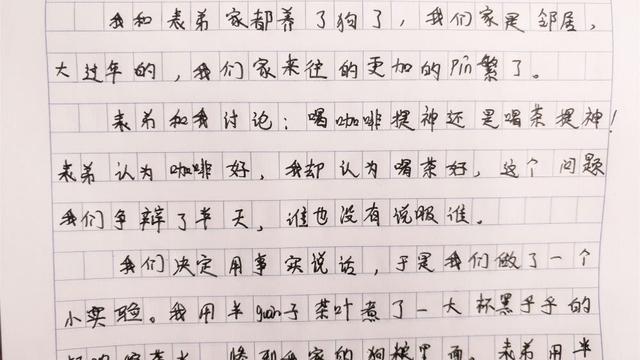 我和表弟家都养了狗了，我们家是邻居，
大过年的，我们家来往的更加的Pín繁了。
表弟和我讨论：喝咖啡提神还是喝茶提神！
表弟认为咖啡好，我却认为喝茶好，这个问题
我们争辩了半天，谁也没有说服谁。
我们决定用事实说话，于是我们做了一个
小实验。我用半guàn子茶叶煮了一大杯黑乎乎的
我家的狗 里面。表弟用半